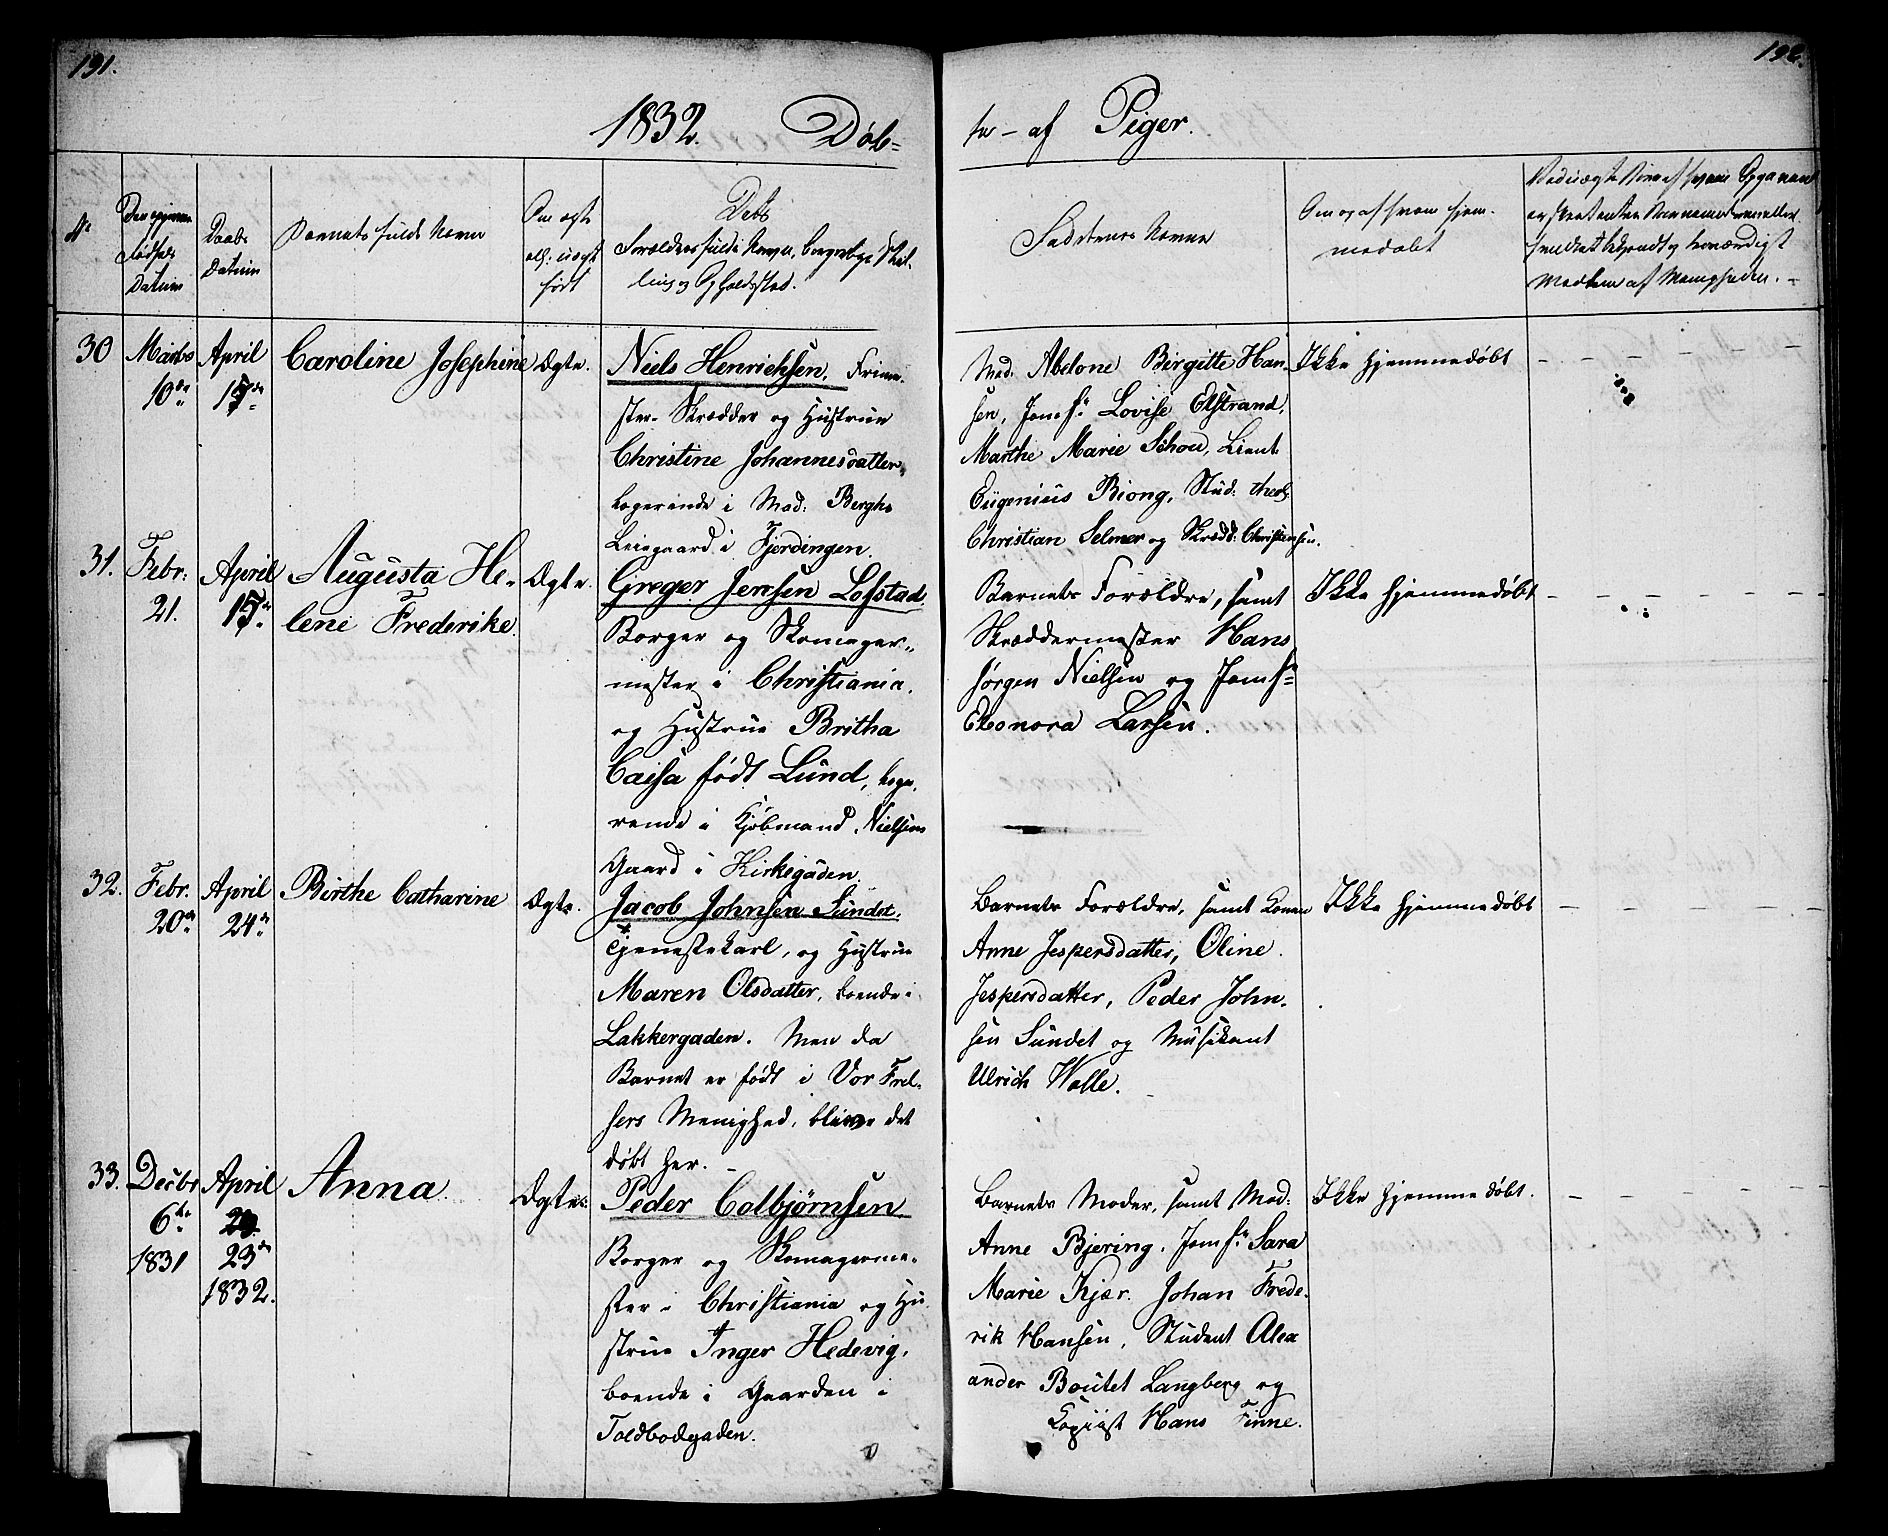 191.
192.
1832. Døb=
te - af Piger.
No
Den opgivne
Fødsels
Datum
Daabs
Datum
Barnets fulde Navn
Om ægte
ell: uægte
født
Dets
Forældres fulde Navne, borgerlige Stil-
ling og Opholdssted.
Faddernes Navne
Om og af hvem hjem-
medøbt
30
Marts
10de
April
15de
Caroline Josephine
Ægte.
Niels Henrichsen, Frime-
ster-Skrædder og Hustrue
Christine Johannesdatter,
logerende i Mad: Berghs
Leiegaard i Fjerdingen.
Mad. Abelone Birgitte Han-
sen, Jomfr Lovise Elstrand,
Marthe Marie Schou, Lieut
Eugenius Biong, Stud: theol:
Christian Selmer og Skrædd: Christensen.
Ikke hjemmedøbt
31.
Febr:
21.
April
15de
Augusta He-
lene Frederike.
Ægte.
Greger Jensen Lofstad
Borger og Skomager-
mester i Christiania.
og Hustrue Britha
Caisa født Lund, loge-
rende i Kjøbmand Nielsens
Gaard i Kirkegaden.
Barnets Forældre, samt
Skræddermester Hans
Jørgen Nielsen og Jomfr
Eleonora Larsen.
Ikke hjemmedøbt
32.
Febr.
20de
April
24de
Birthe Catharine
Ægte.
Jacob Johnsen Sundet,
Tjenestekarl, og Hustrue
Maren Olsdatter, boende i
Lakkergaden. Men da
Barnet er født i Vor Frel-
sers Menighed, bliver det
døbt her.
Barnets Forældre, samt Konen
Anne Jespersdatter, Oline
Jespersdatter, Peder John-
sen Sundet og Musikant
Ulrich Walle.
Ikke hjemmedøbt
33.
Decbr
6te
1831
April
23de
1832.
Anna
Ægte.
Peder Colbjørnsen
Borger og Skomagerme-
ster i Christiania og Hu-
strue Inger Hedevig,
boende i Gaarden i
Toldbodgaden.
Barnets Moder, samt Mad:
Anne Bjering, Jomfr Sara
Marie Kjær. Johan Frede-
rik Hansen, Student Alex
ander Boutet Langberg og
Copiist Hans Finne.
Ikke hjemmedøbt.